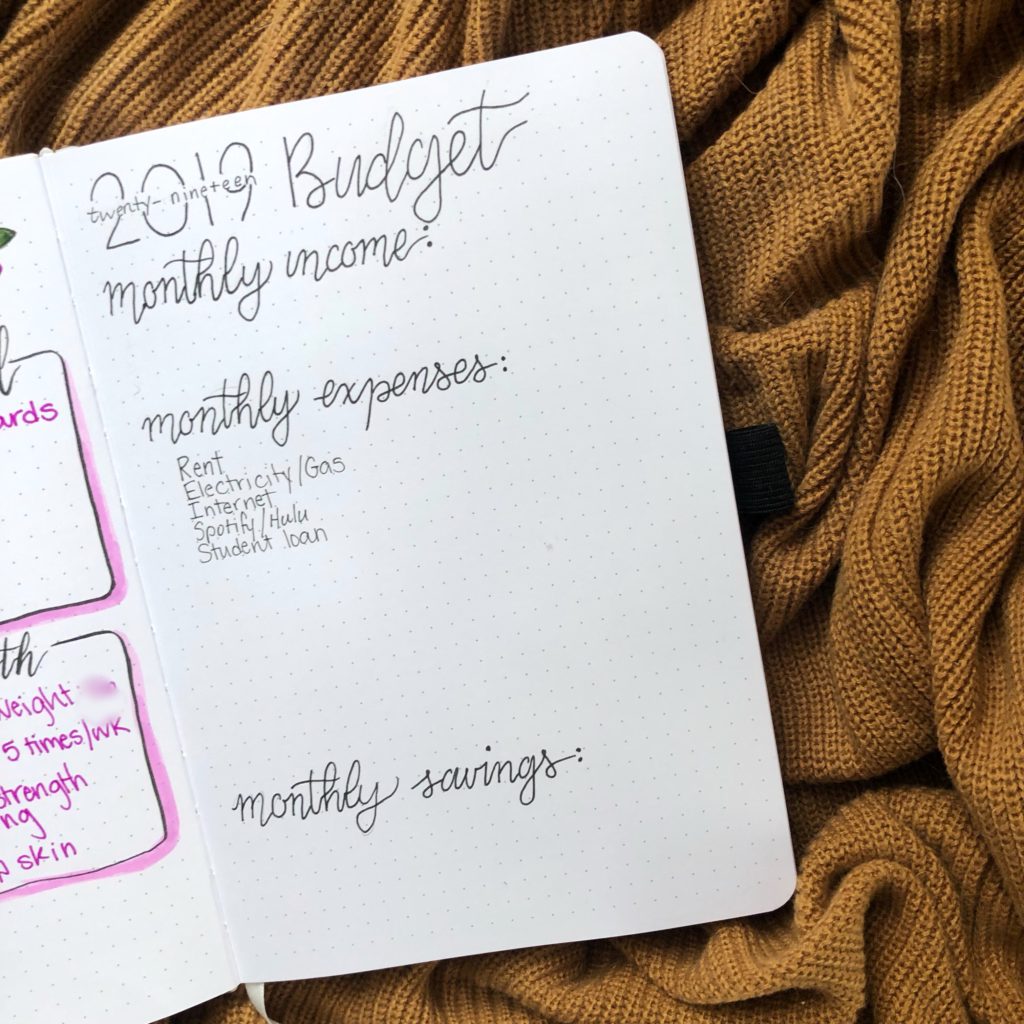 ards
weight
5 times/wk
strength
ng
skin
2019 Budget
twenty-nineteen
monthly income:
monthly expenses:
Rent
Electricity/Gas
Internet
Spotify/Hulu
Student loan
monthly savings: